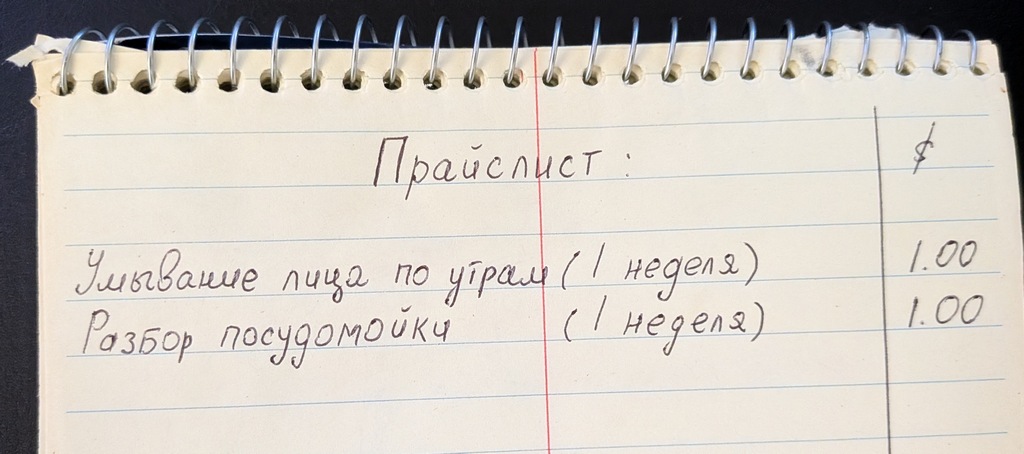 Прайслист : $
Умывание лица по утрам (1 неделя) 1.00
Разбор посудомойки (1 неделя) 1.00